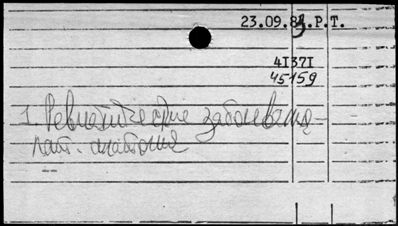 23.09.83.Р.Т.
41371
45159
1. Ревматические заболевания -
пат. анатомия
--